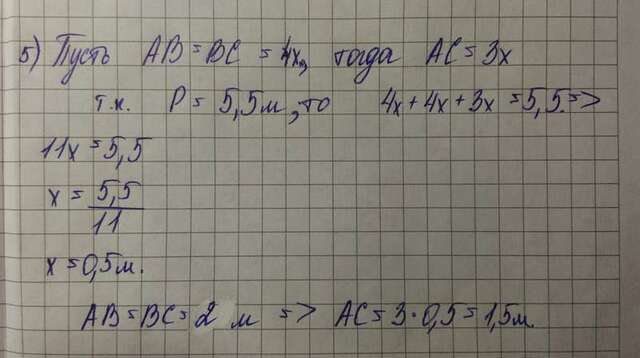 5) Пусть AB = BC = 4x, тогда AC = 3x
т.к. P = 5,5м, то 4x + 4x + 3x = 5,5 =>
11x = 5,5
x = 5,5
11
x = 0,5м.
AB = BC = 2 м => AC = 3 · 0,5 = 1,5м.